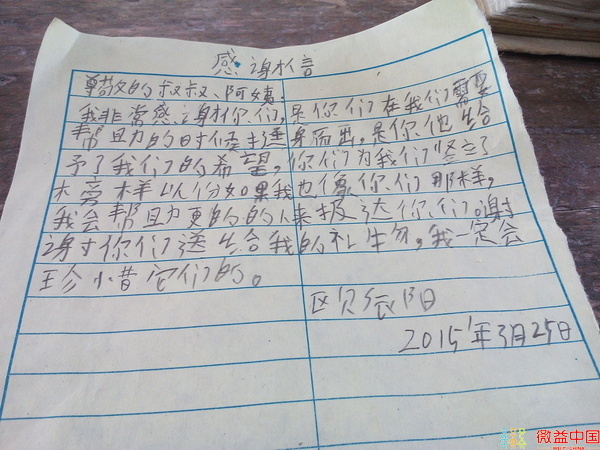 感谢信
尊敬的叔叔、阿姨:
我非常感谢你们,是你们在我们需要
帮助的时候挺身而出,是你他给
予了我们的希望,你们为我们竖立了
榜样以份如果我也像你们那样,
我会帮助更的的人来报达你们。谢
谢你们送给我的礼生物,我一定会
珍惜它们的。
欧阳
2015年3月25日
微益中国